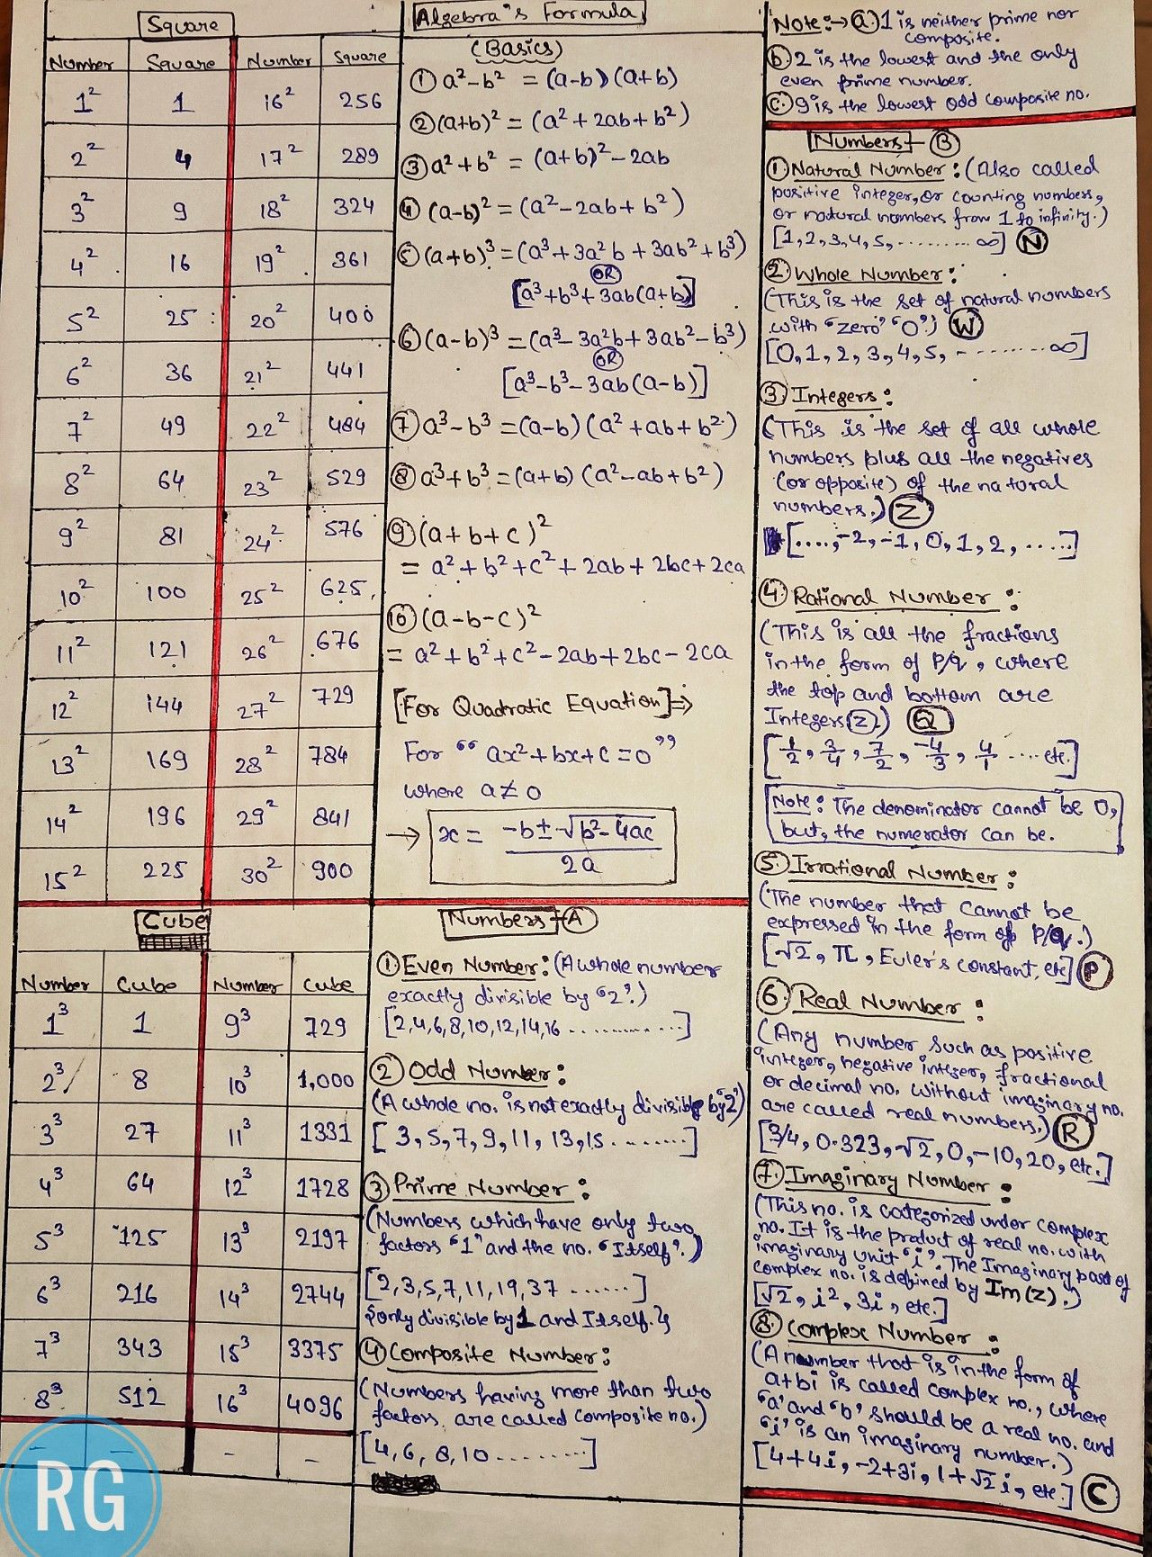 Square
Number Square Number Square
1² 1 16² 256
2² 4 17² 289
3² 9 18² 324
4² 16 19² 361
5² 25 20² 400
6² 36 21² 441
7² 49 22² 484
8² 64 23² 529
9² 81 24² 576
10² 100 25² 625
11² 121 26² 676
12² 144 27² 729
13² 169 28² 784
14² 196 29² 841
15² 225 30² 900
Cube
Number Cube Number Cube
1³ 1 9³ 729
2³ 8 10³ 1,000
3³ 27 11³ 1331
4³ 64 12³ 1728
5³ 125 13³ 2197
6³ 216 14³ 2744
7³ 343 15³ 3375
8³ 512 16³ 4096
– – – –
RG
Algebra's Formula
(Basics)
① a²-b² = (a-b)(a+b)
② (a+b)² = (a²+2ab+b²)
③ a²+b² = (a+b)²-2ab
④ (a-b)² = (a²-2ab+b²)
⑤ (a+b)³ = (a³+3a²b+3ab²+b³)
OR
[a³+b³+3ab(a+b)]
⑥ (a-b)³ = (a³-3a²b+3ab²-b³)
OR
[a³-b³-3ab(a-b)]
⑦ a³-b³ = (a-b)(a²+ab+b²)
⑧ a³+b³ = (a+b)(a²-ab+b²)
⑨ (a+b+c)²
= a²+b²+c²+2ab+2bc+2ca
⑩ (a-b-c)²
= a²+b²+c²-2ab+2bc-2ca
[For Quadratic Equation]⇒
For “ax²+bx+c=0”
where a≠0
→ x = (-b±√b²-4ac)/2a
Numbers-Ⓐ
① Even Number: (A whole number
exactly divisible by '2'.)
[2,4,6,8,10,12,14,16 ...........]
② Odd Number:
(A whole no. is not exactly divisible by '2')
[3,5,7,9,11,13,15 ........]
③ Prime Number:
(Numbers which have only two
factors “1” and the no. “Itself”.)
[2,3,5,7,11,19,37 ......]
{only divisible by 1 and Itself.}
④ Composite Number:
(Numbers having more than two
factors are called Composite no.)
[4,6,8,10 .........]
Note:→ ⓐ 1 is neither prime nor
composite.
ⓑ 2 is the lowest and the only
even prime number.
ⓒ 9 is the lowest odd composite no.
Numbers-Ⓑ
① Natural Number: (Also called
positive integer, or counting numbers,
or natural numbers from 1 to infinity.)
[1,2,3,4,5,.........∞] Ⓝ
② Whole Number:
(This is the set of natural numbers
with “zero” “0”.) Ⓦ
[0,1,2,3,4,5,- ........∞]
③ Integers:
(This is the set of all whole
numbers plus all the negatives
(or opposite) of the natural
numbers.) Ⓩ
[....,-2,-1,0,1,2,.....]
④ Rational Number:
(This is all the fractions
in the form of P/q, where
the top and bottom are
Integers(Z)) Ⓠ
[1/2, 3/4, 7/2, -4/3, 4/1 .... etc.]
Note: The denominator cannot be 0,
but, the numerator can be.
⑤ Irrational Number:
(The number that cannot be
expressed in the form of P/q.)
[√2, π, Euler's constant, etc] Ⓟ
⑥ Real Number:
(Any number such as positive
integer, negative integer, fractional
or decimal no. without imaginary no.
are called real numbers.) Ⓡ
[3/4, 0.323, √2, 0, -10, 20, etc.]
⑦ Imaginary Number:
(This no. is categorized under complex
no. It is the product of real no. with
imaginary unit “i”. The Imaginary part of
complex no. is defined by Im(z).)
[√2, i², 3i, etc.]
⑧ Complex Number:
(A number that is in the form of
a+bi is called complex no., where
“a” and “b” should be a real no. and
“i” is an imaginary number.)
[4+4i, -2+3i, 1+√2i, etc.] Ⓒ